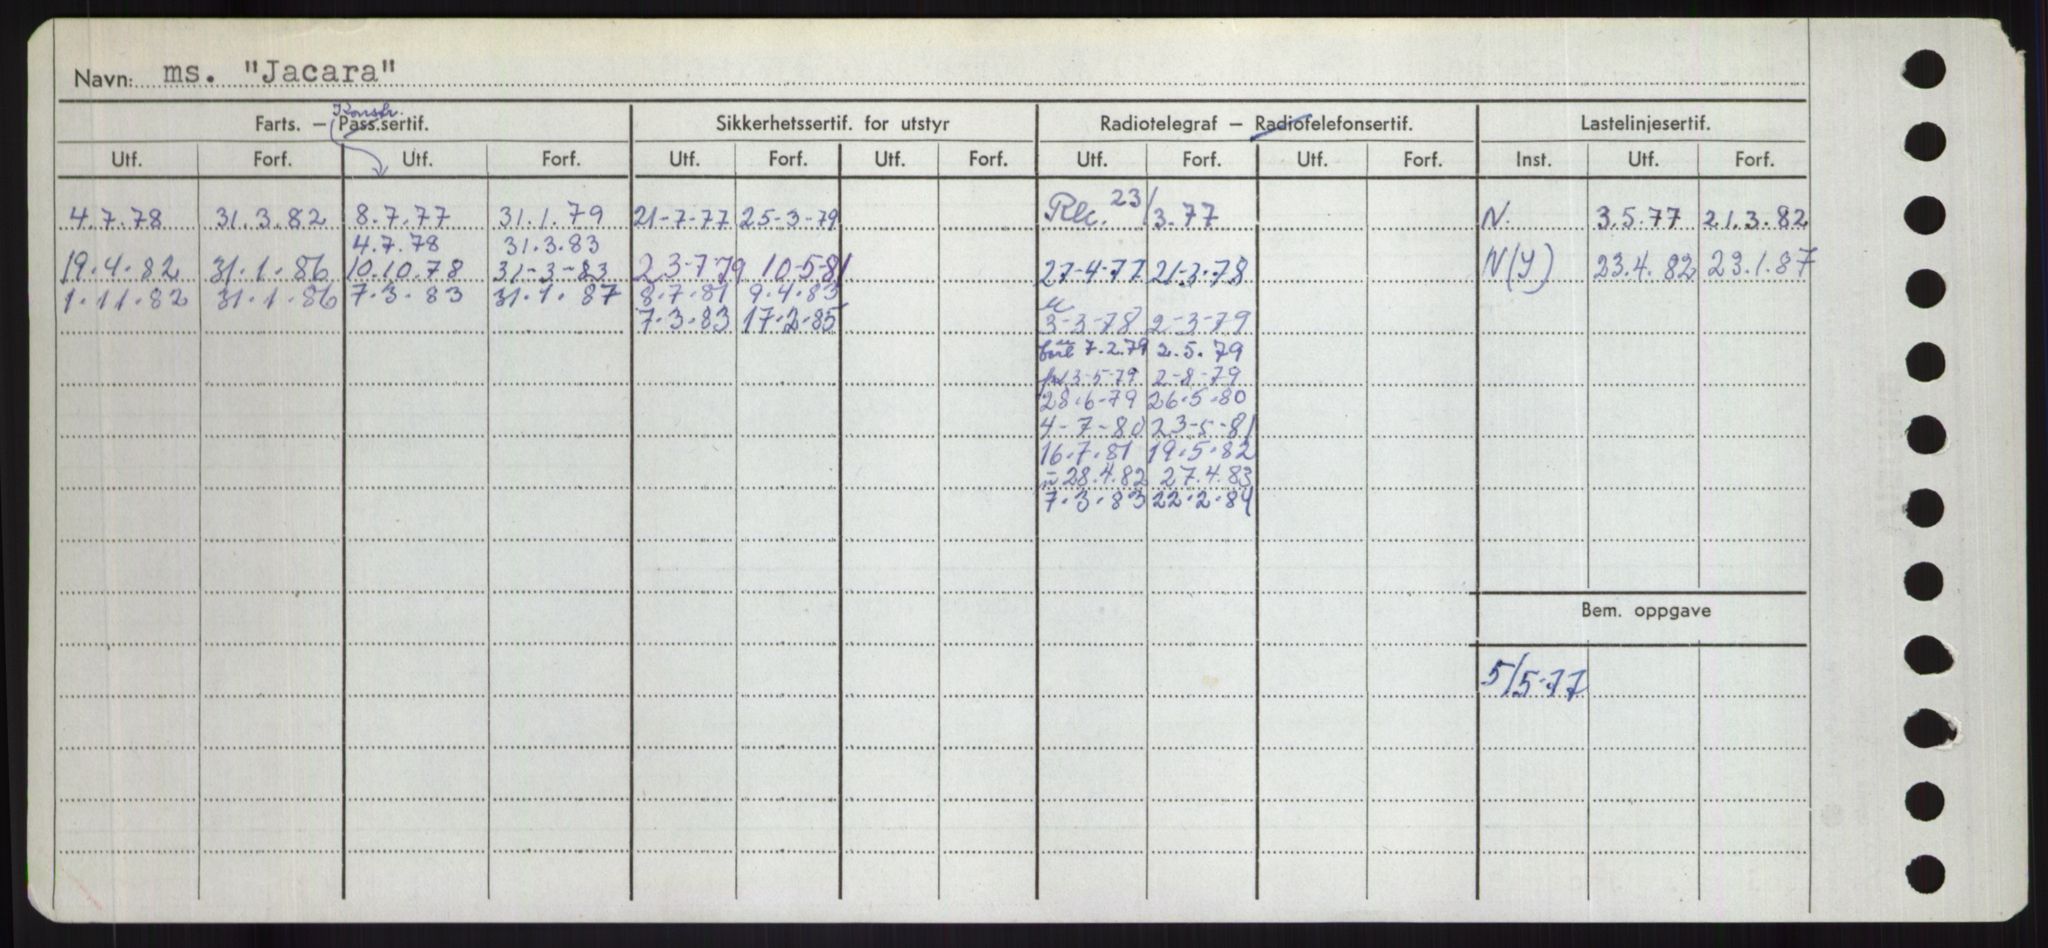 Navn: ms. "Jacara"
Konstr.
Farts. — Pass.sertif. Sikkerhetssertif. for utstyr Radiotelegraf — Radiotelefonsertif. Lastelinjesertif.
Utf. Forf. Utf. Forf. Utf. Forf. Utf. Forf. Utf. Forf. Utf. Forf. Inst. Utf. Forf.
4.7.78 31.3.82 8.7.77 31.1.79 21-7-77 25-3-79 Rec. 23/3.77 N. 3.5.77 21.3.82
4.7.78 31.3.83
19.4.82 31.1.86 10.10.78 31-3-83 23-7-79 10-5-81 27-4-77 21-3-78 N(Y) 23.4.82 23.1.87
1.11.82 31.1.86 7.3.83 31.1.87 8.7.81 9.4.83
7.3.83 17.2.85 3-3-78 2-3-79
7.2.79 2.5.79
3-5-79 2-8-79
28.6-79 26.5.80
4-7-80 23-5-81
16.7.81 19.5.82
28.4.82 27.4.83
7.3.83 22.2.84
Bem. oppgave
5/5-77